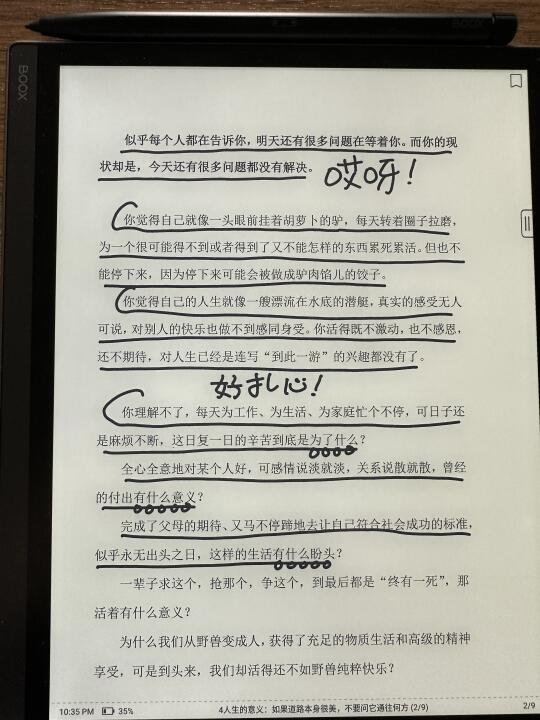 BOOX
BOOX
似乎每个人都在告诉你，明天还有很多问题在等着你。而你的现
状却是，今天还有很多问题都没有解决。
哎呀！
你觉得自己就像一头眼前挂着胡萝卜的驴，每天转着圈子拉磨，
为一个很可能得不到或者得到了又不能怎样的东西累死累活。但也不
能停下来，因为停下来可能会被做成驴肉馅儿的饺子。
你觉得自己的人生就像一艘漂流在水底的潜艇，真实的感受无人
可说，对别人的快乐也做不到感同身受。你活得既不激动，也不感恩，
还不期待，对人生已经是连写“到此一游”的兴趣都没有了。
好扎心！
你理解不了，每天为工作、为生活、为家庭忙个不停，可日子还
是麻烦不断，这日复一日的辛苦到底是为了什么？
全心全意地对某个人好，可感情说淡就淡，关系说散就散，曾经
的付出有什么意义？
完成了父母的期待、又马不停蹄地去让自己符合社会成功的标准，
似乎永无出头之日，这样的生活有什么盼头？
一辈子求这个，抢那个，争这个，到最后都是“终有一死”，那
活着有什么意义？
为什么我们从野兽变成人，获得了充足的物质生活和高级的精神
享受，可是到头来，我们却活得还不如野兽纯粹快乐？
10:35 PM 35% 4人生的意义：如果道路本身很美，不要问它通往何方 (2/9) 2/9